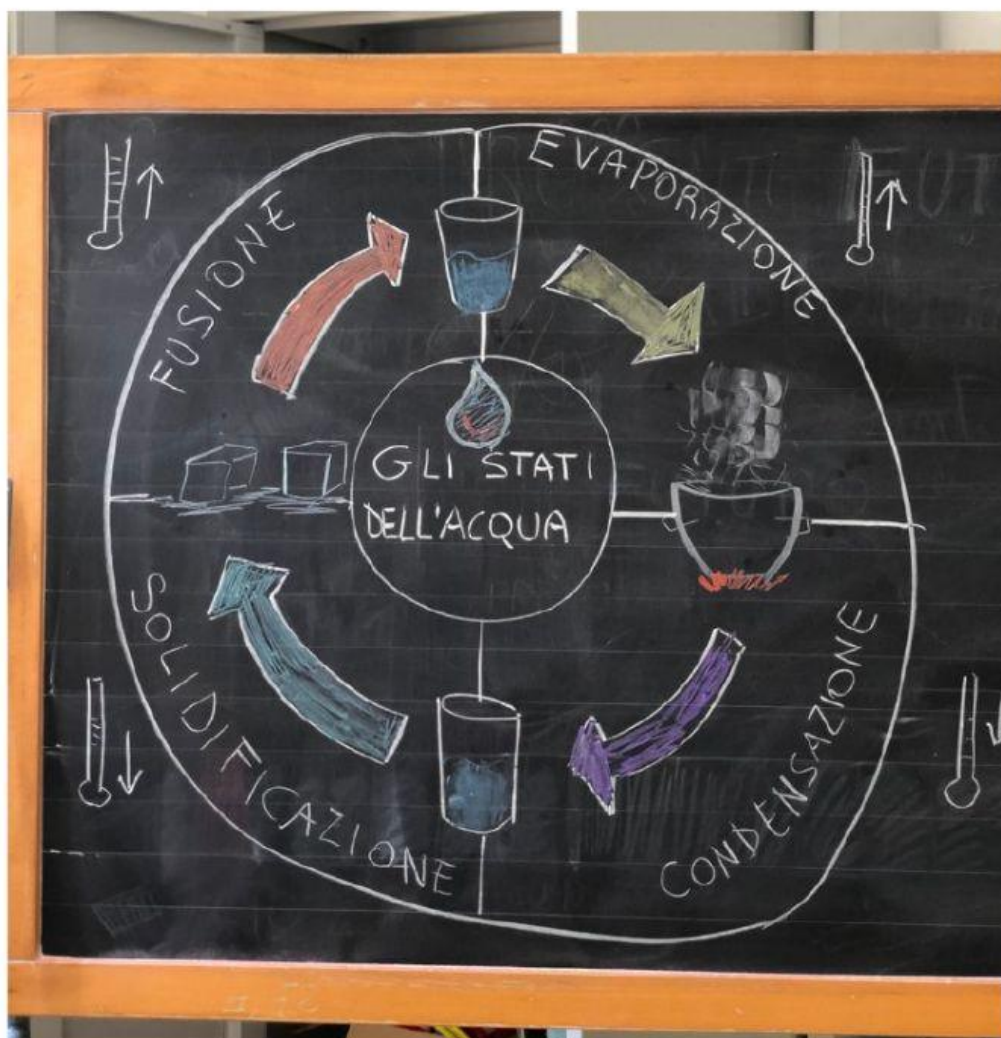 FUSIONE
EVAPORAZIONE
GLI STATI
DELL'ACQUA
SOLIDIFICAZIONE
CONDENSAZIONE